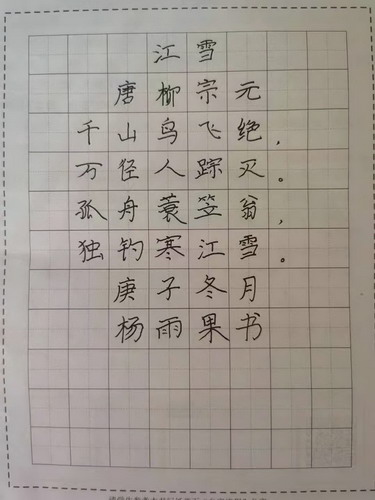 江雪
唐柳宗元
千山鸟飞绝，
万径人踪灭。
孤舟蓑笠翁，
独钓寒江雪。
庚子冬月
杨雨果书